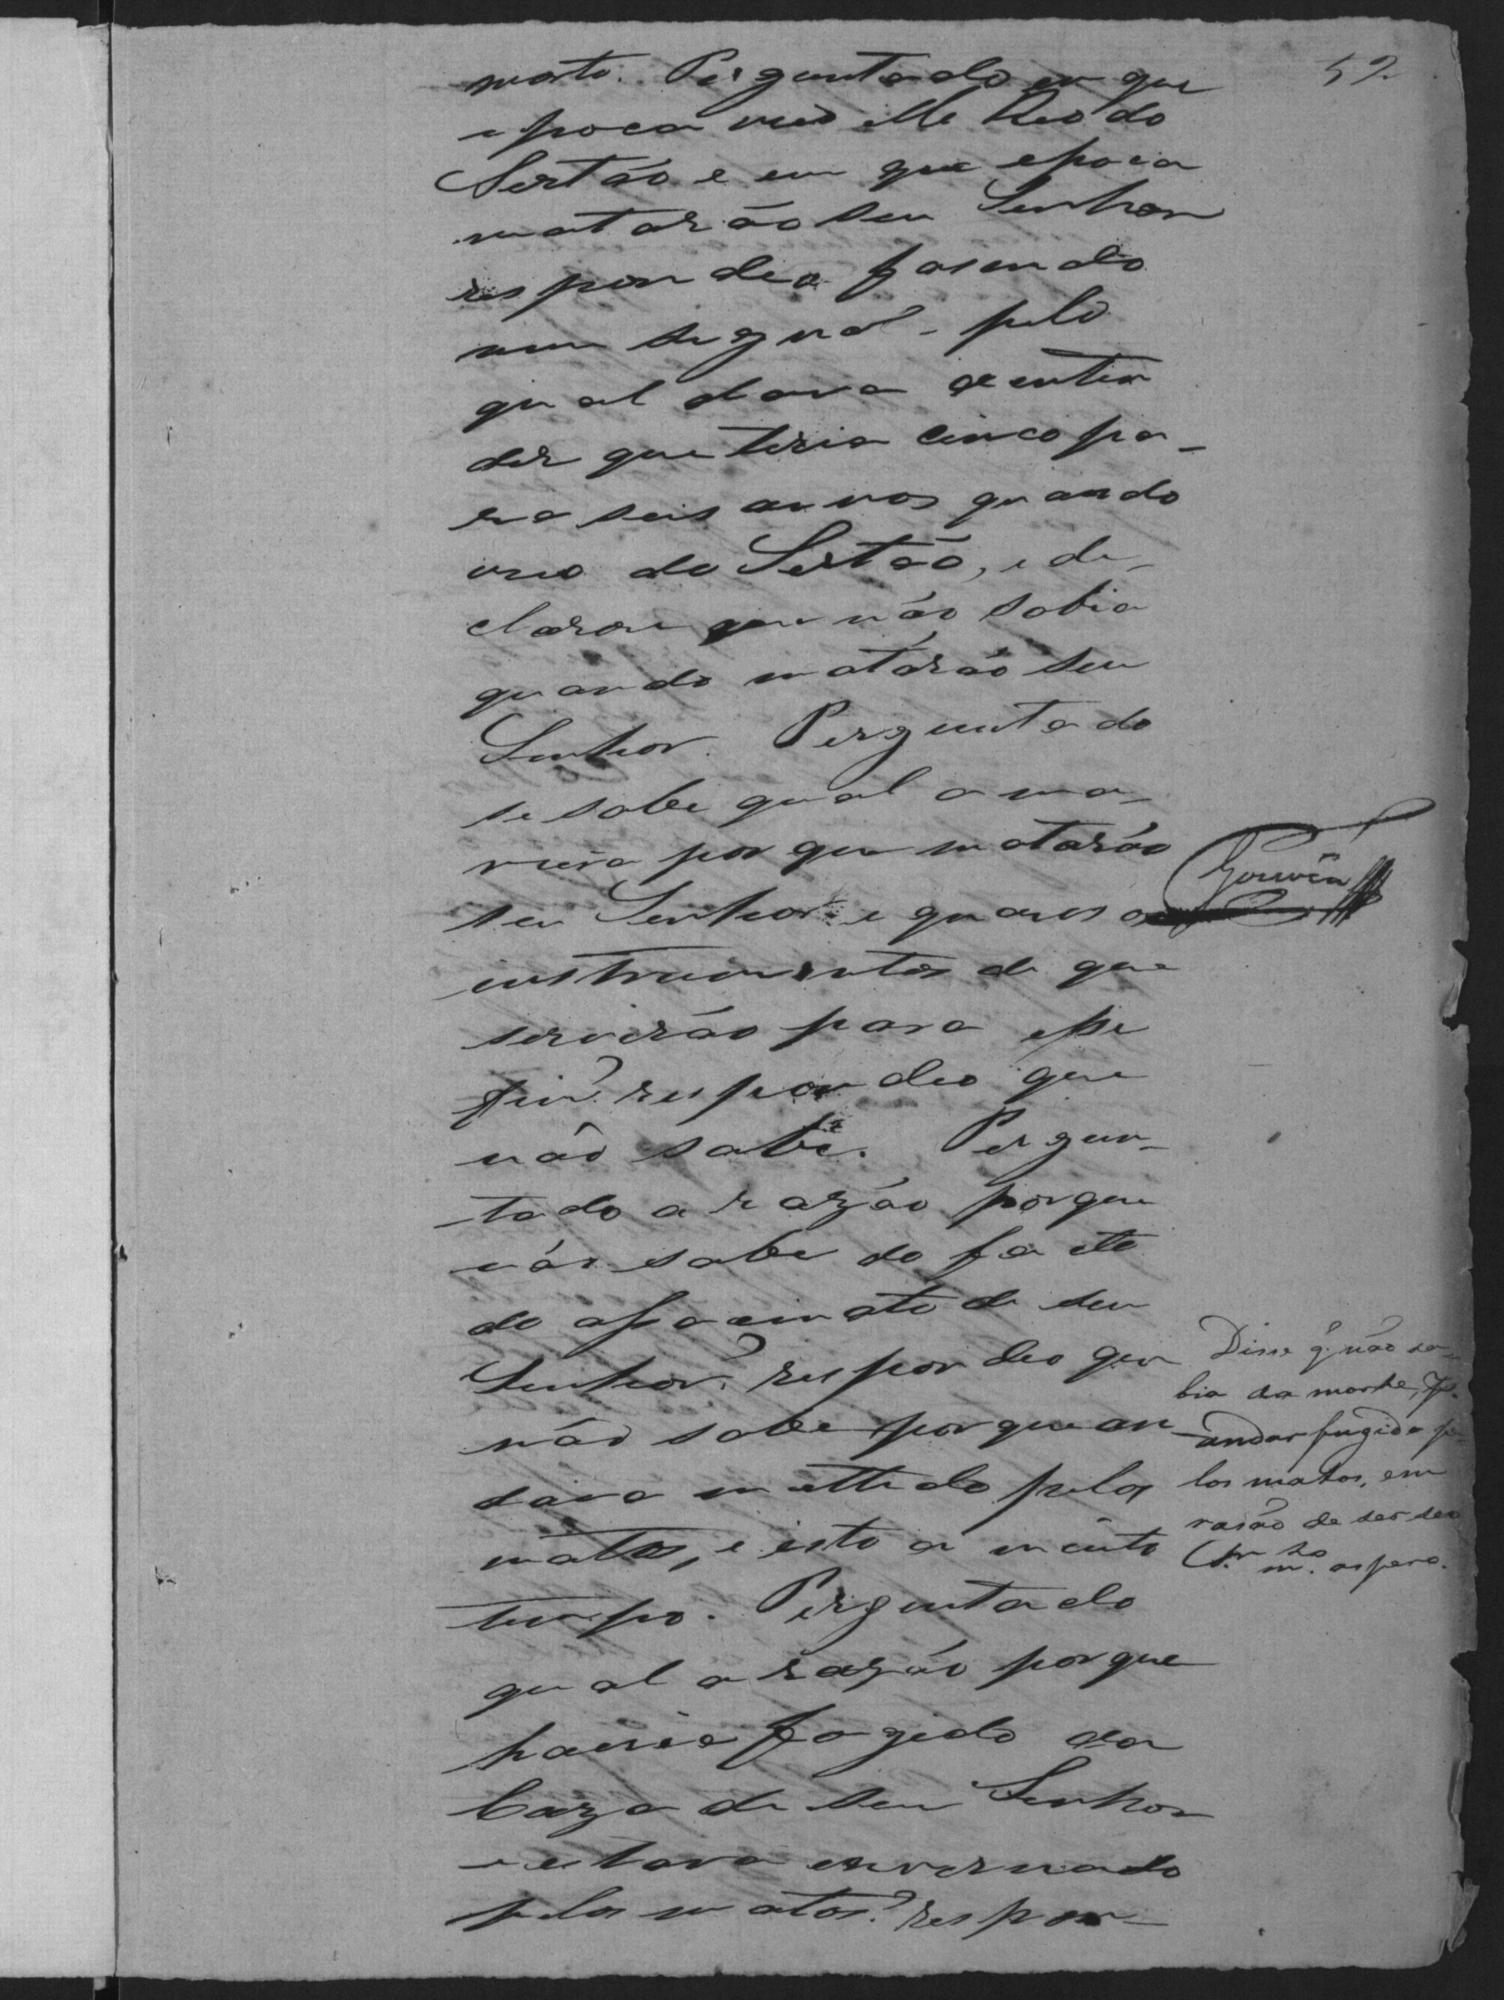 52
morto. Perguntado em que
epoca veio elle Reo do
Sertão e em que epoca
matarão seu Senhor
respondeo fasendo
um signal pelo
qual dava a enten
der que teria cinco pa-
ra seis annos quando
veio do Sertão, e de-
clarou que não sabia
quando matárão seu
Senhor. Perguntado
se sabe qual a ma-
neira por que matarão
seu Senhor e quaes os
instrumentos de que
servirão para esse
fim? respondeo que
não sabe. Pergun-
tado a razão porque
não sabe do facto
do assacinato de seu
Senhor? respondeo que
não sabe porque an
dava mettido pelos
matos, e isto a muito
tempo. Perguntado
qual a razão porque
havia fogido da
Caza de seu Senhor
e estava
pelos matos? respon-
Gouvêa
Disse q. não sa-
bia da morte, p.
andar fugido pe-
los matos, em
rasão de ser seo
Snr. m.to aspero.